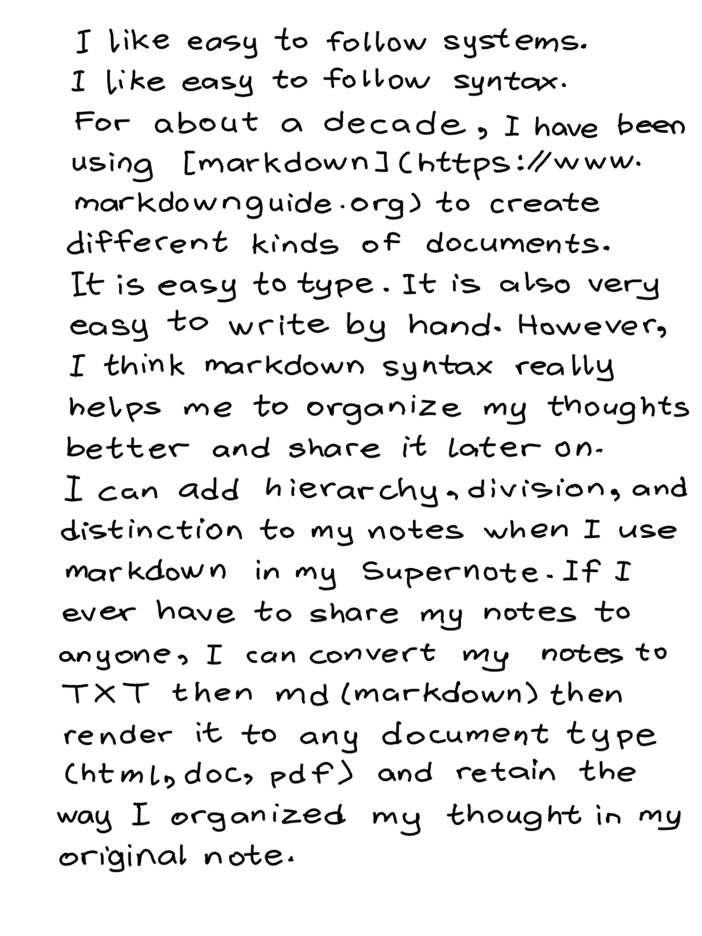 I like easy to follow systems.
I like easy to follow syntax.
For about a decade, I have been
using [markdown](https://www.
markdownguide.org) to create
different kinds of documents.
It is easy to type. It is also very
easy to write by hand. However,
I think markdown syntax really
helps me to organize my thoughts
better and share it later on.
I can add hierarchy, division, and
distinction to my notes when I use
markdown in my Supernote. If I
ever have to share my notes to
anyone, I can convert my notes to
TXT then md (markdown) then
render it to any document type
(html, doc, pdf) and retain the
way I organized my thought in my
original note.